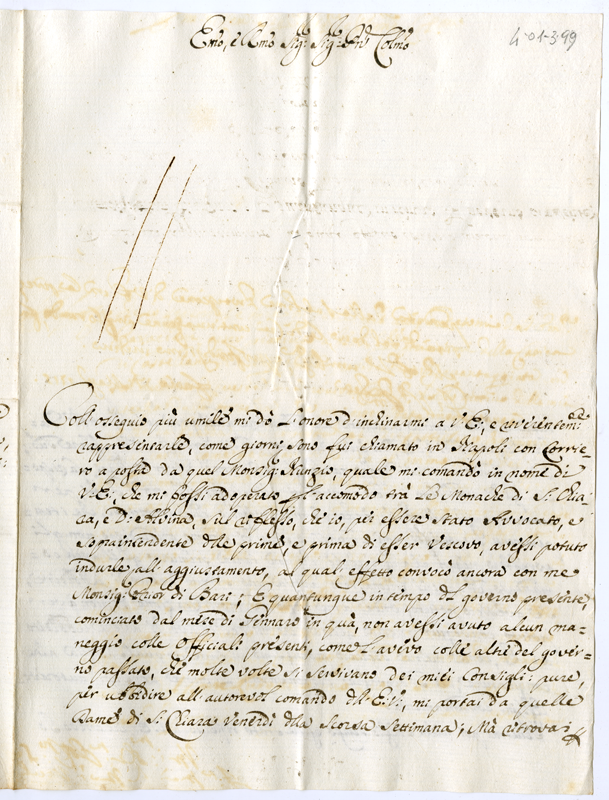 4-01-3-99
Emo, e Rmo Sig:r Sig:r Pne Colmo
Coll' ossequio più umile mi dò l'onore d'inchinarmi a V: E:, e
rappresentarle, come giorni sono fui chiamato in Napoli con Corrie-
ro a posta da quel Monsig: Nunzio, quale mi comandò in nome di
V: E:, che mi fossi adoperato p l'accomodo trà le Monache di S: Chia-
ra, e D: Alvina, sul riflesso, che io, per essere stato Avvocato, e
Sopraintendente delle prime, e prima di esser Vescovo, avessi potuto
indurle all'aggiustamento, al qual effetto convocò ancora con me
Monsig: di Bari; E quantunque in tempo del governo presente,
cominciato dal mese di Gennaro in quà, non avessi avuto alcun ma-
neggio colle Officiali presenti, come l'avevo colle altre del gover-
no passato, che molte volte si servivano dei miei Consigli: pure,
per ubbidire all'autorevol comando dell'E: V:, mi portai da quelle
Dame di S: Chiara Venerdì della scorsa settimana; Mà ritrovai